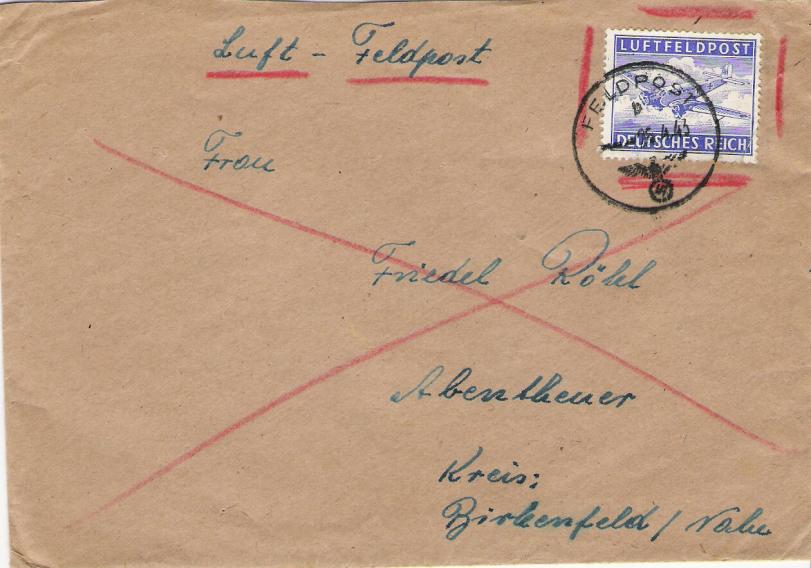 Luft - Feldpost
LUFTFELDPOST
DEUTSCHES REICH
FELDPOST
b
4.43
Frau
Friedel Röhl
Abentheuer
Kreis:
Birkenfeld / Nahe